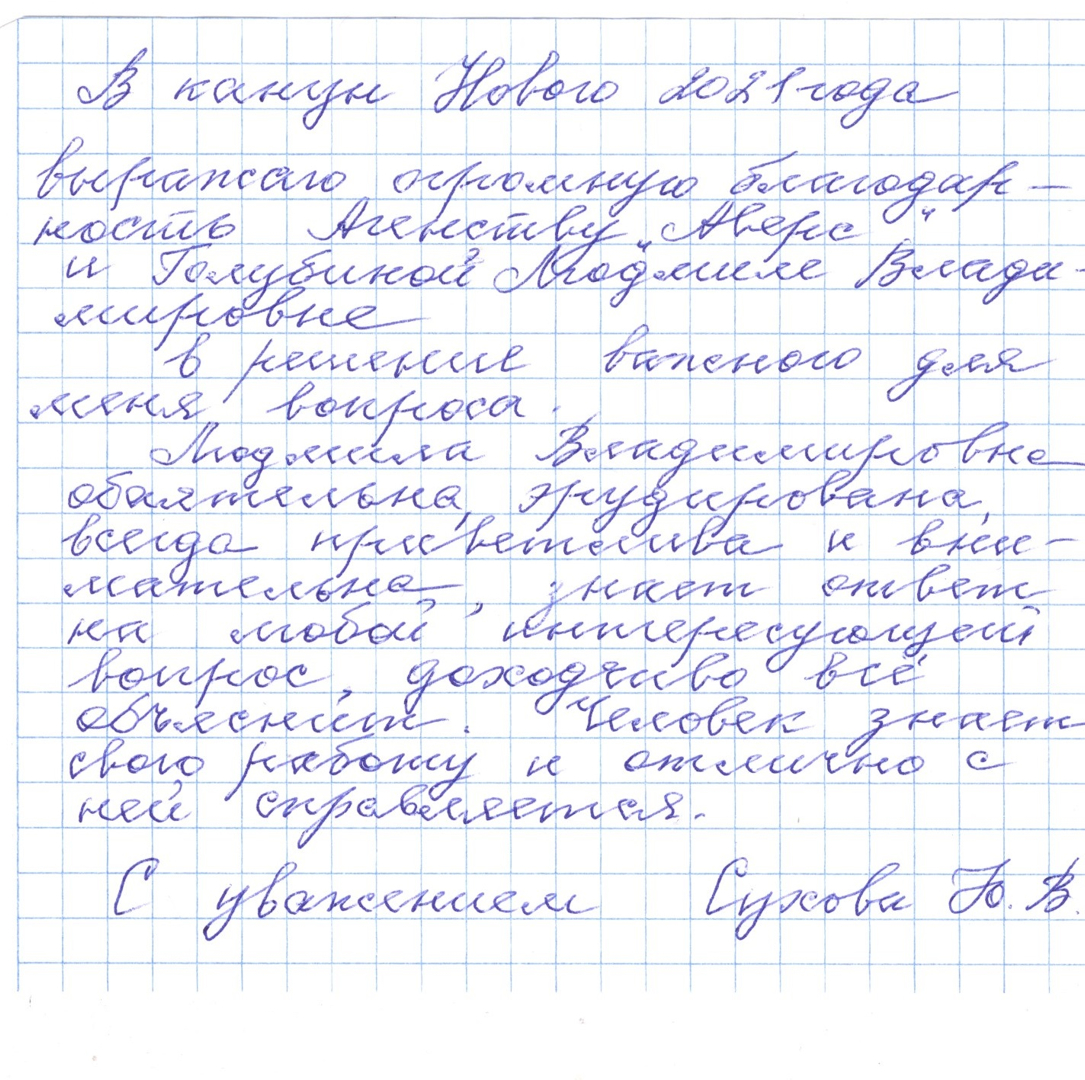 В канун Нового 2021 года
выражаю огромную благодар-
ность Агенству "Аверс"
и Голубиной Людмиле Влади-
мировне
в решение важного для
меня вопроса.
Людмила Владимировна
обаятельна, эрудирована,
всегда приветлива и вни-
мательна, знает ответ
на любой интересующий
вопрос, доходчиво всё
объяснит. Человек знает
свою работу и отлично с
ней справляется.
С уважением Сухова Ю. В.